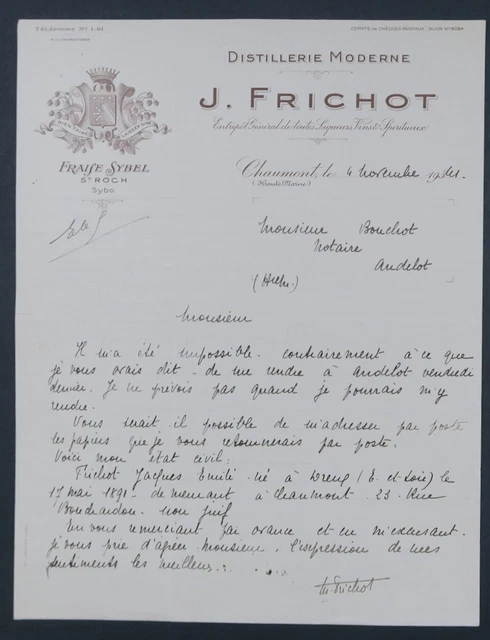 TÉLÉPHONE N° 1.61
COMPTE DE CHÈQUES POSTAUX: DIJON N° 8084
DISTILLERIE MODERNE
J. FRICHOT
Entrepôt Général de toutes Liqueurs, Vins & Spiritueux
FRAISE SYBEL
ST ROCH
Sybo
Chaumont, le 4 novembre 1941.
(Haute-Marne)
Monsieur Bouchot
Notaire
Andelot
(Hte Mne)
Monsieur
Il m'a été impossible, contrairement à ce que
je vous avais dit - de me rendre à Andelot vendredi
dernier. Je ne prévois pas quand je pourrais m'y
rendre.
Vous serait-il possible de m'adresser par poste
les papiers que je vous retournerais par poste.
Voici mon état civil:
Frichot Jacques Emile né à Dreux (E. et Loir) le
17 mai 1891 - demeurant à Chaumont - 23 - Rue
Bouchardon. non juif
En vous remerciant par avance et en m'excusant.
je vous prie d'agréer Monsieur. l'expression de mes
sentiments les meilleurs.
Frichot